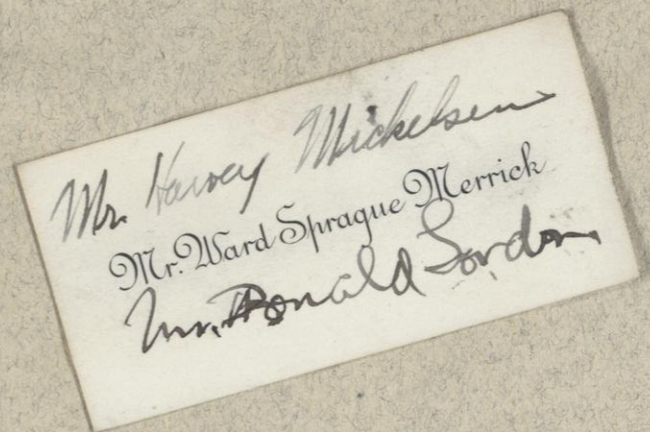 Mr. Harvey Mickelsen
Mr. Ward Sprague Merrick
Mr. Donald Gordon